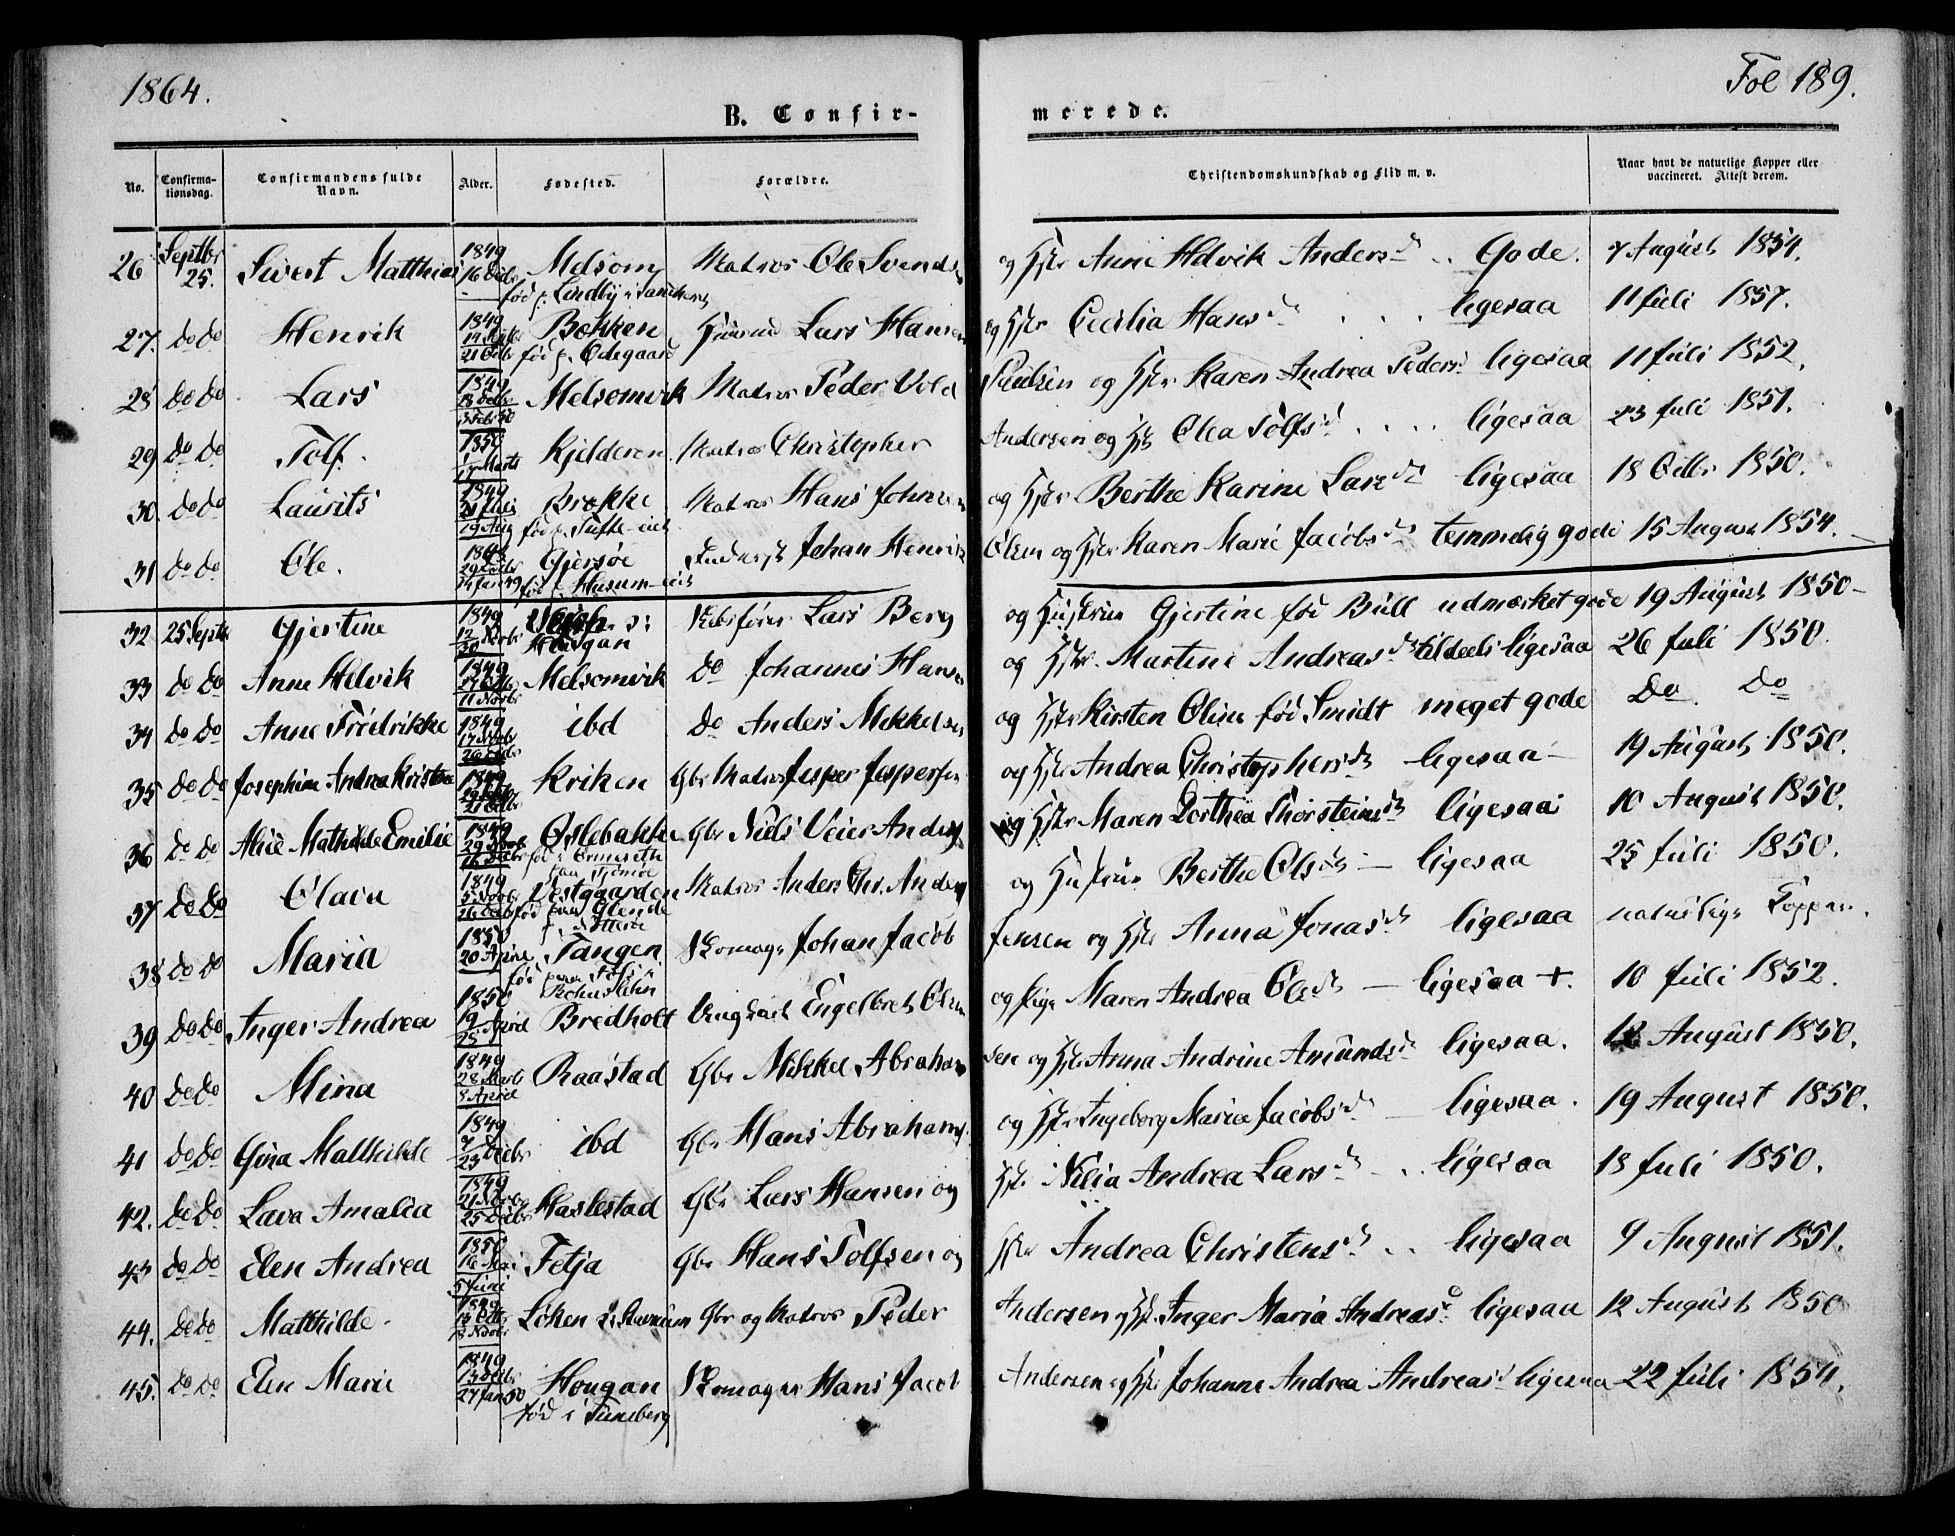 1864.
Fol 189.
B. Confir-
merede.
No.
Confirma-
tionsdag.
Confirmandens fulde
Navn.
Alder.
Fødested.
Forældre.
Christendomskundskab og Flid m. v.
Naar havt de naturlige Kopper eller
vaccineret. Attest derom.
26 Septbr 25. Sivert Matthias 1849 16 Decbr Melsom Matros Ole Svends og Anne Helvik Anders Gode. 7 August 1854.
27. do do Henrik 1849 21 Octbr Bøkken fød p. Ødegaard Lars Hansen og Cecilia Hans ligesaa 11 Juli 1857.
28 do do Lars 1849 Melsomvik Matros Peder Vold Paulsen og Karen Andrea Peders ligesaa 11 Juli 1852.
29 do do Tolf. 1850 Marts Kjelderen Matros Christopher Andersen og Olea Tolfs ligesaa 23 Juli 1851.
30. do do Laurits 1849 Juli 19 Aug Brække Matros Hans Johnsen og Berthe Karine Lars ligesaa 18 Octbr 1850.
31 do do Ole. Gjersøe fød Husum-eie Johan Henrik Olsen og Karen Marie Jacobs temmelig gode 15 August 1854.
32 25 Septb Gjertine 1849 Novbr Haugan Lars Berg og Hustrue Gjertine fød Bull udmærket gode 19 August 1850
33 do do Anne Helvik 1849 11 Novbr Melsomvik do Johannes Hansen og Martine Andreas tildeels ligesaa 26 Juli 1850.
34 do do Anne Fredrikke 1849 17 Novbr 26 Decbr ibd do Anders Mikkelsen og Kirsten Oline fød Smidt meget gode Do Do
35 do do Josephine Andrea Kristine 1849 Kriken Gbr Matros Jesper Jespersen og Andrea Christophers ligesaa 19 August 1850.
36 do do Alise Mathilde Emilie 1849 29 Novb Oslebakke Gbr Niels Veier Anders og Maren Dorthea Thorsteins ligesaa 10 August 1850.
37 do do Olava 1849 5 Novb 26 Decb Vestgaarden Matros Anders Chr. Anders og Hustrue Berthe Ols ligesaa 25 Juli 1850.
38 do do Maria 1850 20 April Tangen Skomager Johan Jacob Jensen og Anna Jonas ligesaa naturlige Kopper.
39 do do Inger Andrea 1850 19 25 April Bredholt Engelbret Olsen og Pige Maren Andrea Ols ligesaa +. 10 Juli 1852.
40 do do Mina 1849 28 Marts 8 April Raastad Gbr Mikkel Abraham sen og Anna Andrine Amunds ligesaa. August 1850.
41 do do Gina Matthilde 1849 23 Decbr ibd Gbr Hans Abrahams og Ingeborg Maria Jacobs ligesaa. 19 August 1850.
42. do do Lava Amalia 1849 21 Novb 25 Decbr Haslestad Gbr Lars Hansen og Nilia Andrea Lars ligesaa 18 Juli 1850.
43 do do Elen Andrea 1850 16 Mai 5 Juni Fetja Gbr Hans Tolfsen og Andrea Christens ligesaa 9 August 1851.
44. do do Matthilde. 1849 Løken Gbr og Matros Peder Andersen og Inger Maria Andreas ligesaa 12 August 1850
45. do do Elen Marie 1849 27 Jan 50 Hougan fød i Tunsberg Skomager Hans Jacob Andersen og Johanne Andrea Andreas ligesaa 22 Juli 1854.